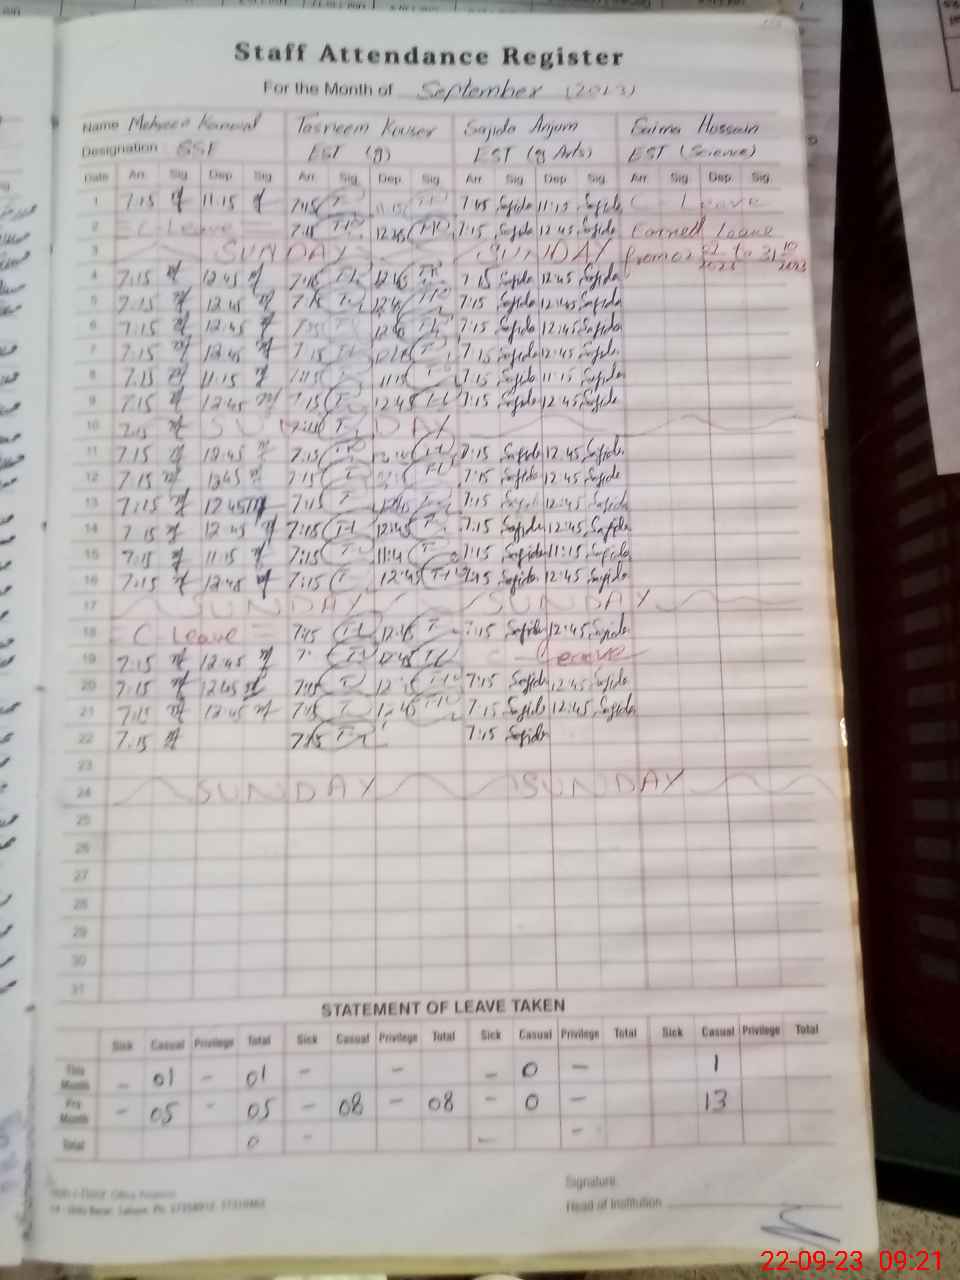 Staff Attendance Register
For the Month of September (2013)
Name Mehreen Kanwal Tasneem Kouser Sajida Anjum Saima Hossain
Designation SSE EST (g) EST (g Arts) EST (Science)
Date Arr Sig Dep Sig Arr Sig Dep Sig Arr Sig Dep Sig Arr Sig Dep Sig
1 7.15 11.15 7:15 11:15 7:15 Sajida 11:15 Sajida C Leave
2 C Leave 7:15 12:45 7:15 Sajida 12:45 Sajida Earned Leave
3 SUNDAY SUNDAY from 02 2023 to 31 10 2023
4 7.15 12.45 7:15 12:45 7:15 Sajida 12:45 Sajida
5 7.15 12.45 7:15 12:45 7:15 Sajida 12:45 Sajida
6 7.15 12.45 12:45 7:15 Sajida 12:45 Sajida
7 7.15 12.45 7:15 7:15 Sajida 12:45 Sajida
8 7.15 11.15 7:15 11:15 7:15 Sajida 11:15 Sajida
9 7.15 12.45 7:15 12:45 7:15 Sajida 12:45 Sajida
10 7.15 SUNDAY
11 7.15 12.45 7:15 7:15 Sajida 12:45 Sajida
12 7.15 12.45 7:15 7:15 Sajida 12:45 Sajida
13 7:15 12.45 7:15 12:45 7:15 Sajida 12:45 Sajida
14 7.15 12.45 7:15 12:45 7:15 Sajida 12:45 Sajida
15 7.15 11.15 7:15 11:14 7:15 Sajida 11:15 Sajida
16 7:15 12.45 7:15 12:45 7:15 Sajida 12:45 Sajida
17 SUNDAY SUNDAY
18 C Leave 7:15 12:45 7:15 Sajida 12:45 Sajida
19 7.15 12.45 12:45 C Leave
20 7.15 12.45 7:15 7:15 Sajida 12:45 Sajida
21 7:15 12:45 7:15 12:45 7:15 Sajida 12:45 Sajida
22 7.15 7:15 7:15 Sajida
23
24 SUNDAY SUNDAY
25
26
27
28
29
30
31
STATEMENT OF LEAVE TAKEN
Sick Casual Privilege Total Sick Casual Privilege Total Sick Casual Privilege Total Sick Casual Privilege Total
This Month - 01 - 01 - - - 0 - 1
Pre Month - 05 - 05 - 08 - 08 - 0 - 13
Total 0 - - -
Signature
Head of Institution
22-09-23 09:21